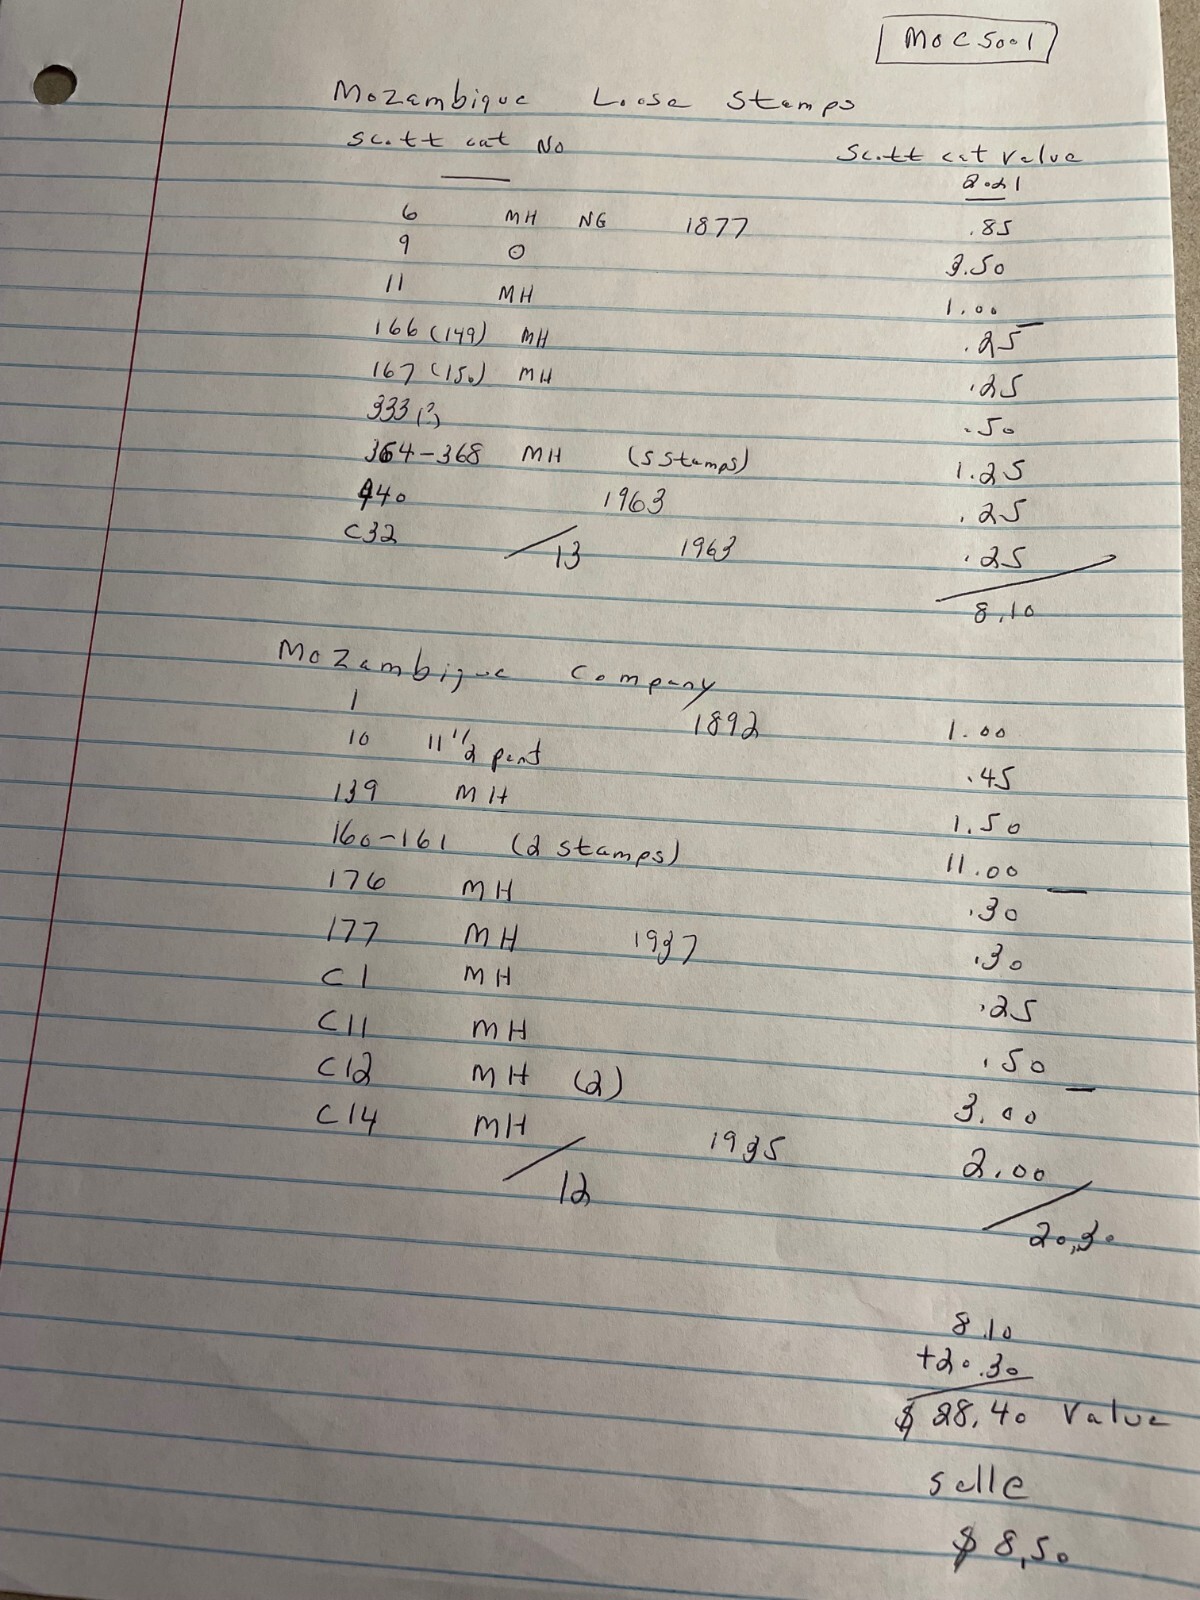 MOC5001
Mozambique Loose Stamps
Scott cat No Scott cat value
2021
6 MH NG 1877 .85
9 O 3.50
11 MH 1.00
166 (149) MH .25
167 (150) MH .25
333 (?) .50
364-368 MH (5 stamps) 1.25
440 1963 .25
C32 13 1963 .25
8.10
Mozambique Company
1 1892 1.00
10 11 1/2 perf .45
139 MH 1.50
160-161 (2 stamps) 11.00
176 MH .30
177 MH 1937 .30
C1 MH .25
C11 MH .50
C12 MH (2) 3.00
C14 MH 1935 2.00
12
20.30
8.10
+20.30
$ 28.40 Value
salle
$ 8.50